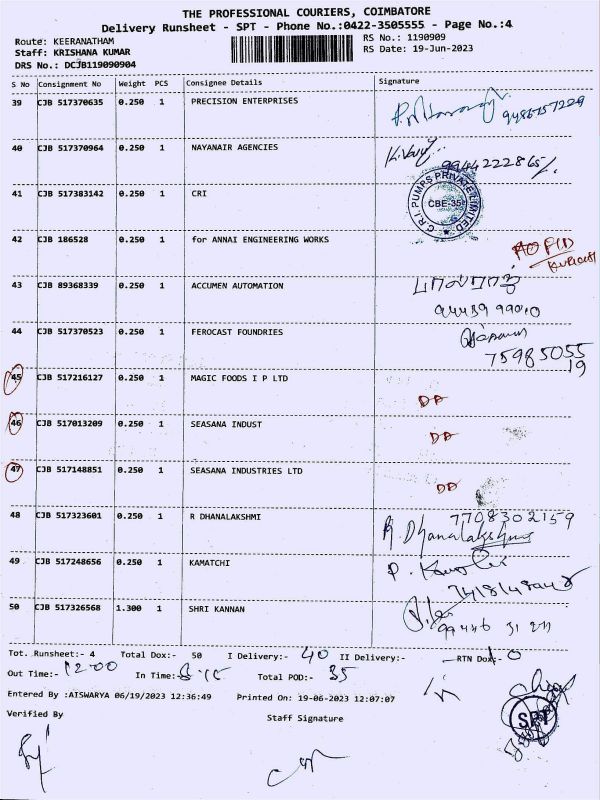 THE PROFESSIONAL COURIERS, COIMBATORE
Delivery Runsheet - SPT - Phone No.:0422-3505555 - Page No.:4
Route: KEERANATHAM RS No.: 1190909
Staff: KRISHANA KUMAR RS Date: 19-Jun-2023
DRS No.: DCJB119090904
S No Consignment No Weight PCS Consignee Details Signature
39 CJB 517370635 0.250 1 PRECISION ENTERPRISES 9486757229
40 CJB 517370964 0.250 1 NAYANAIR AGENCIES 9944222865/.
41 CJB 517383142 0.250 1 CRI C.R.I. PUMPS PRIVATE LIMITED CBE-35
42 CJB 186528 0.250 1 for ANNAI ENGINEERING WORKS
43 CJB 89368339 0.250 1 ACCUMEN AUTOMATION
44 CJB 517370523 0.250 1 FEROCAST FOUNDRIES 75985055
19
45 CJB 517216127 0.250 1 MAGIC FOODS I P LTD DD
46 CJB 517013209 0.250 1 SEASANA INDUST DD
47 CJB 517148851 0.250 1 SEASANA INDUSTRIES LTD DD
48 CJB 517323601 0.250 1 R DHANALAKSHMI 7708302159
R Dhanalakshmi
49 CJB 517248656 0.250 1 KAMATCHI
50 CJB 517326568 1.300 1 SHRI KANNAN
Tot. Runsheet:- 4 Total Dox:- 50 I Delivery:- 40 II Delivery:- RTN Dox:- 10
Out Time:- 12.00 In Time:- 8.15 Total POD:- 35
Entered By :AISWARYA 06/19/2023 12:36:49 Printed On: 19-06-2023 12:07:07
Verified By Staff Signature
SPT